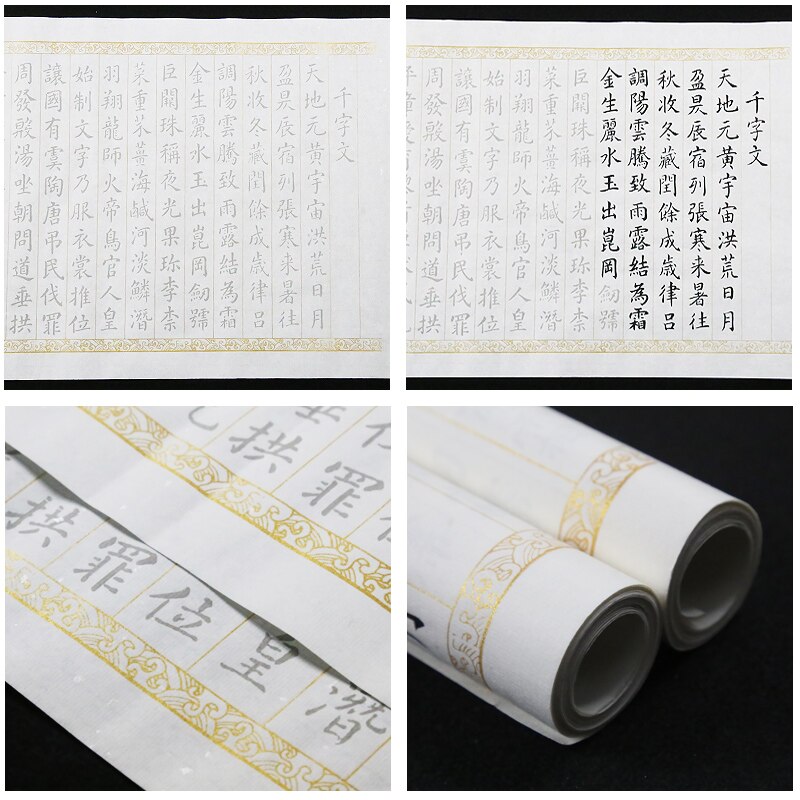 千字文
天地元黄宇宙洪荒日月
盈昃辰宿列張寒来暑往
秋收冬藏閏餘成歲律吕
調陽雲騰致雨露結為霜
金生麗水玉出崑岡劒號
巨闕珠稱夜光果珎李柰
菜重芥薑海鹹河淡鱗潛
羽翔龍師火帝鳥官人皇
始制文字乃服衣裳推位
讓國有虞陶唐吊民伐罪
周發殷湯坐朝問道垂拱
千字文
天地元黄宇宙洪荒日月
盈昃辰宿列張寒来暑往
秋收冬藏閏餘成歲律吕
調陽雲騰致雨露結為霜
金生麗水玉出崑岡劒號
巨闕珠稱夜光果珎李柰
菜重芥薑海鹹河淡鱗潛
羽翔龍師火帝鳥官人皇
始制文字乃服衣裳推位
讓國有虞陶唐吊民伐罪
周發殷湯坐朝問道垂拱
位
伐罪
垂拱
潛
皇
位
罪
拱